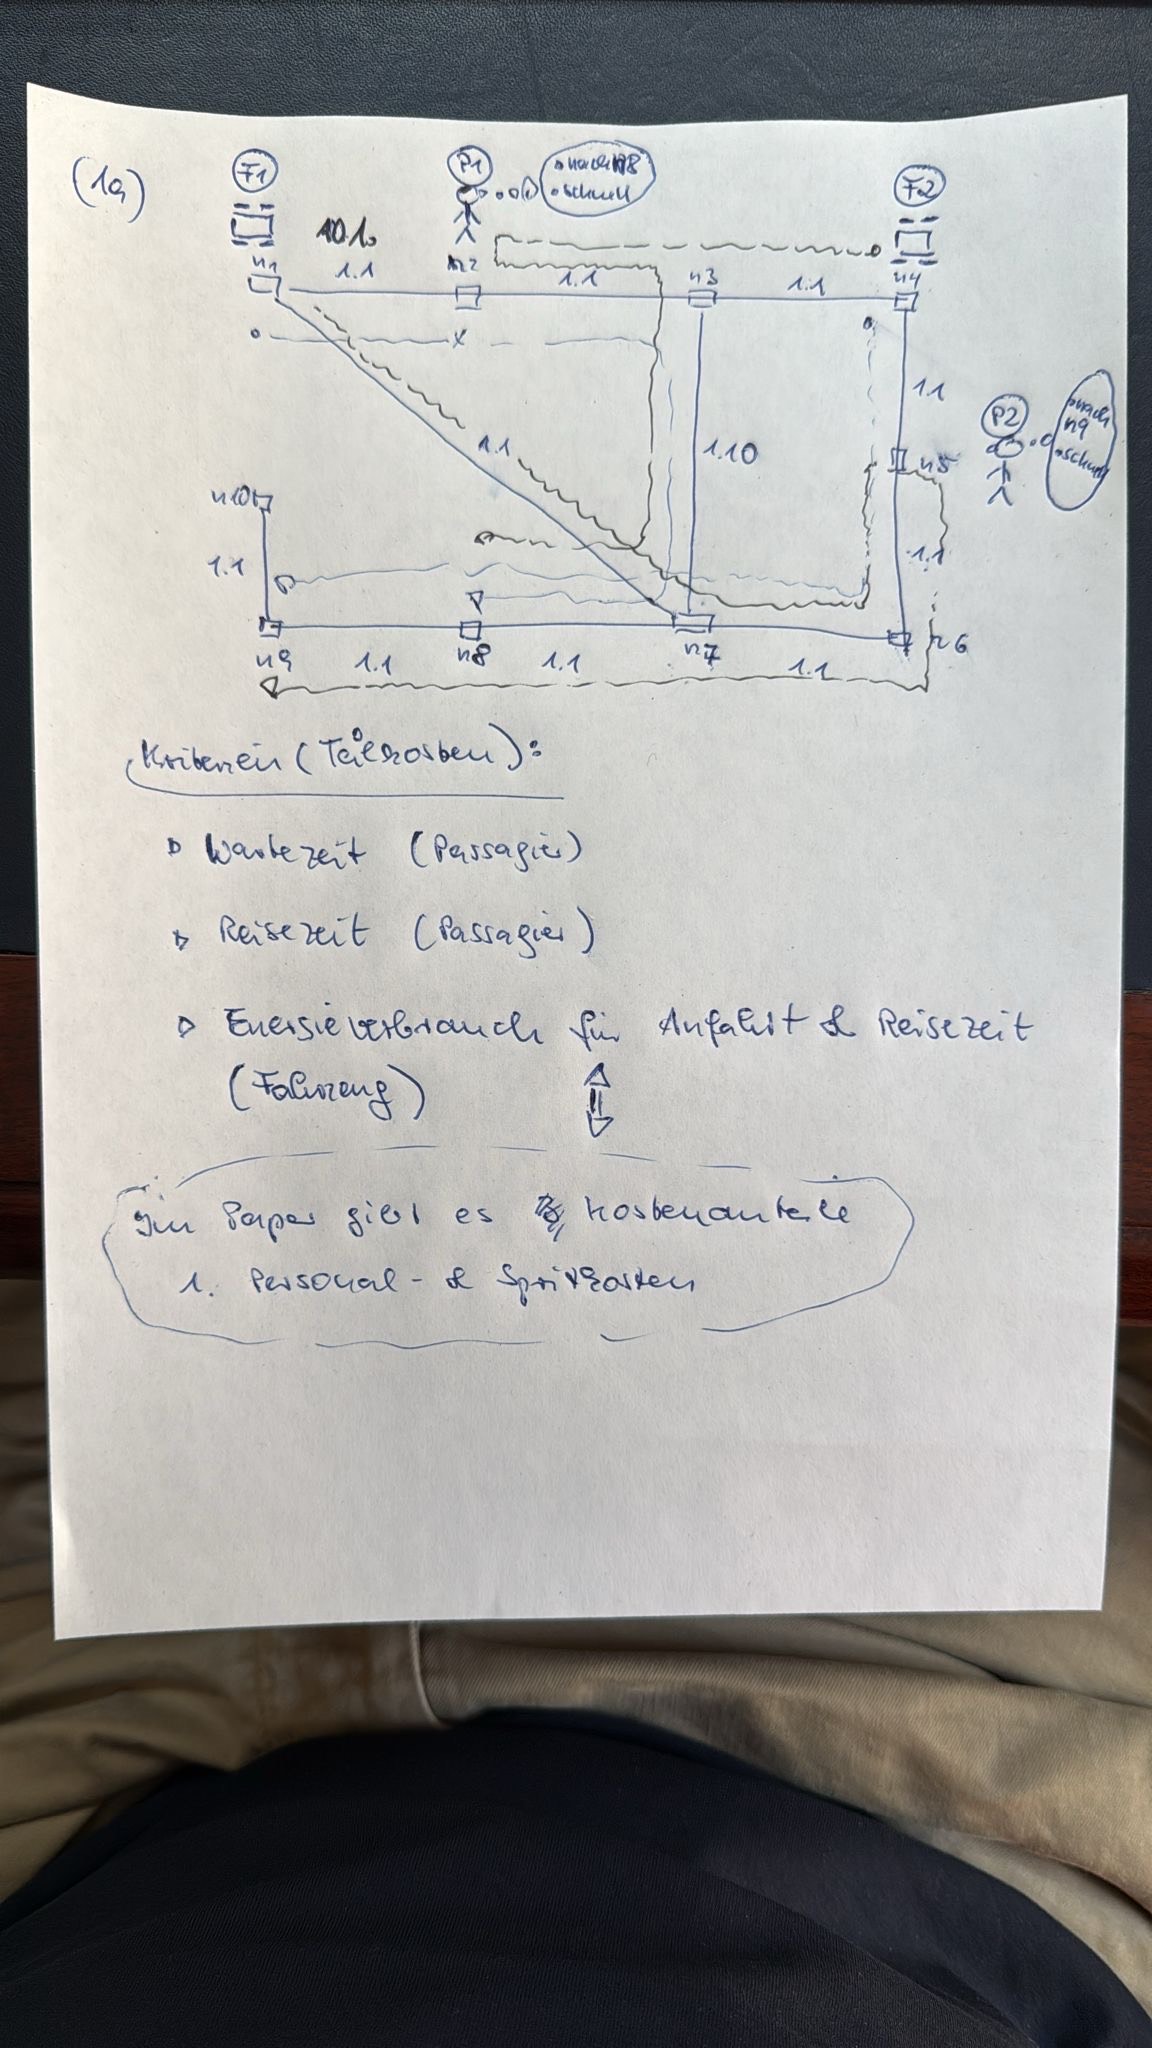 (1a)
F1
P1
• nach n8
• schnell
F2
10.1.
n1
1.1
n2
1.1
n3
1.1
n4
1.1
P2
• nach
n9
• schnell
1.1
1.10
n5
n10
1.1
1.1
n9
1.1
n8
1.1
n7
1.1
n6
Kriterien (Teilkosten):
▹ Wartezeit (Passagier)
▹ Reisezeit (Passagier)
▹ Energieverbrauch für Anfahrt & Reisezeit
(Fahrzeug)
Im Paper gibt es Kostenanteile
1. Personal- & Spritkosten